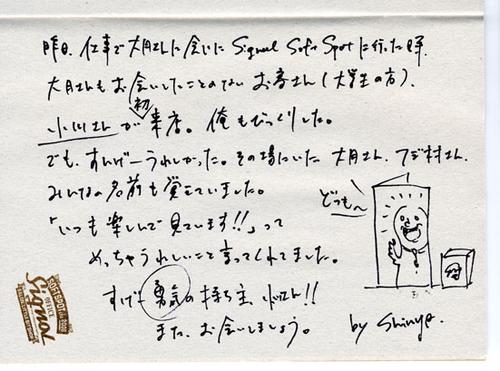 昨日、仕事で大月さんに会いにSignal Soft Spotに行った時、
大月さんもお会いしたことのないお客さん(大学生の方)、
小川さんが初来店。俺もびっくりした。
でも、すんげーうれしかった。その場にいた大月さん、フジ村さん、
みんなの名前も覚えていました。
「いつも楽しんで見ています!!」って
めっちゃうれしいこと言ってくれてました。
すげー勇気の持ち主、小川さん!!
また、お会いしましょう。
by Shinya.
どうも〜
Signal